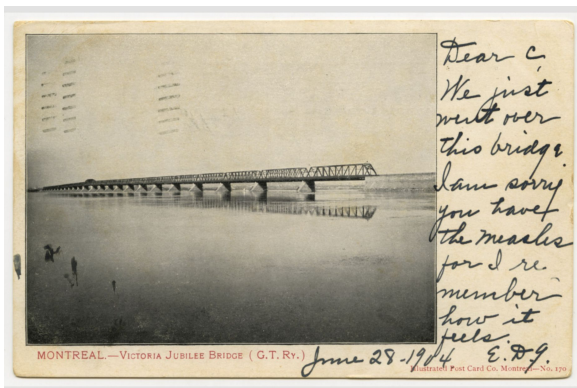 Dear C
We just
went over
this bridge
I am sorry
you have
the measles
for I re.
member
how it
feels.
E.D.G.
MONTREAL.—VICTORIA JUBILEE BRIDGE (G.T. RY.)
June 28-1904
Illustrated Post Card Co. Montreal—No. 170